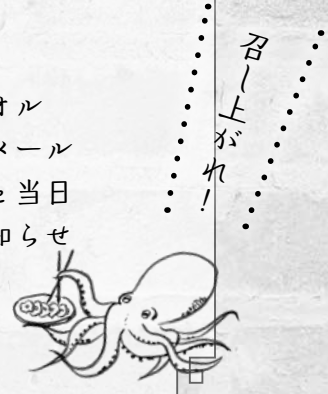 召し上がれ!
オル
メール
当日
知らせ